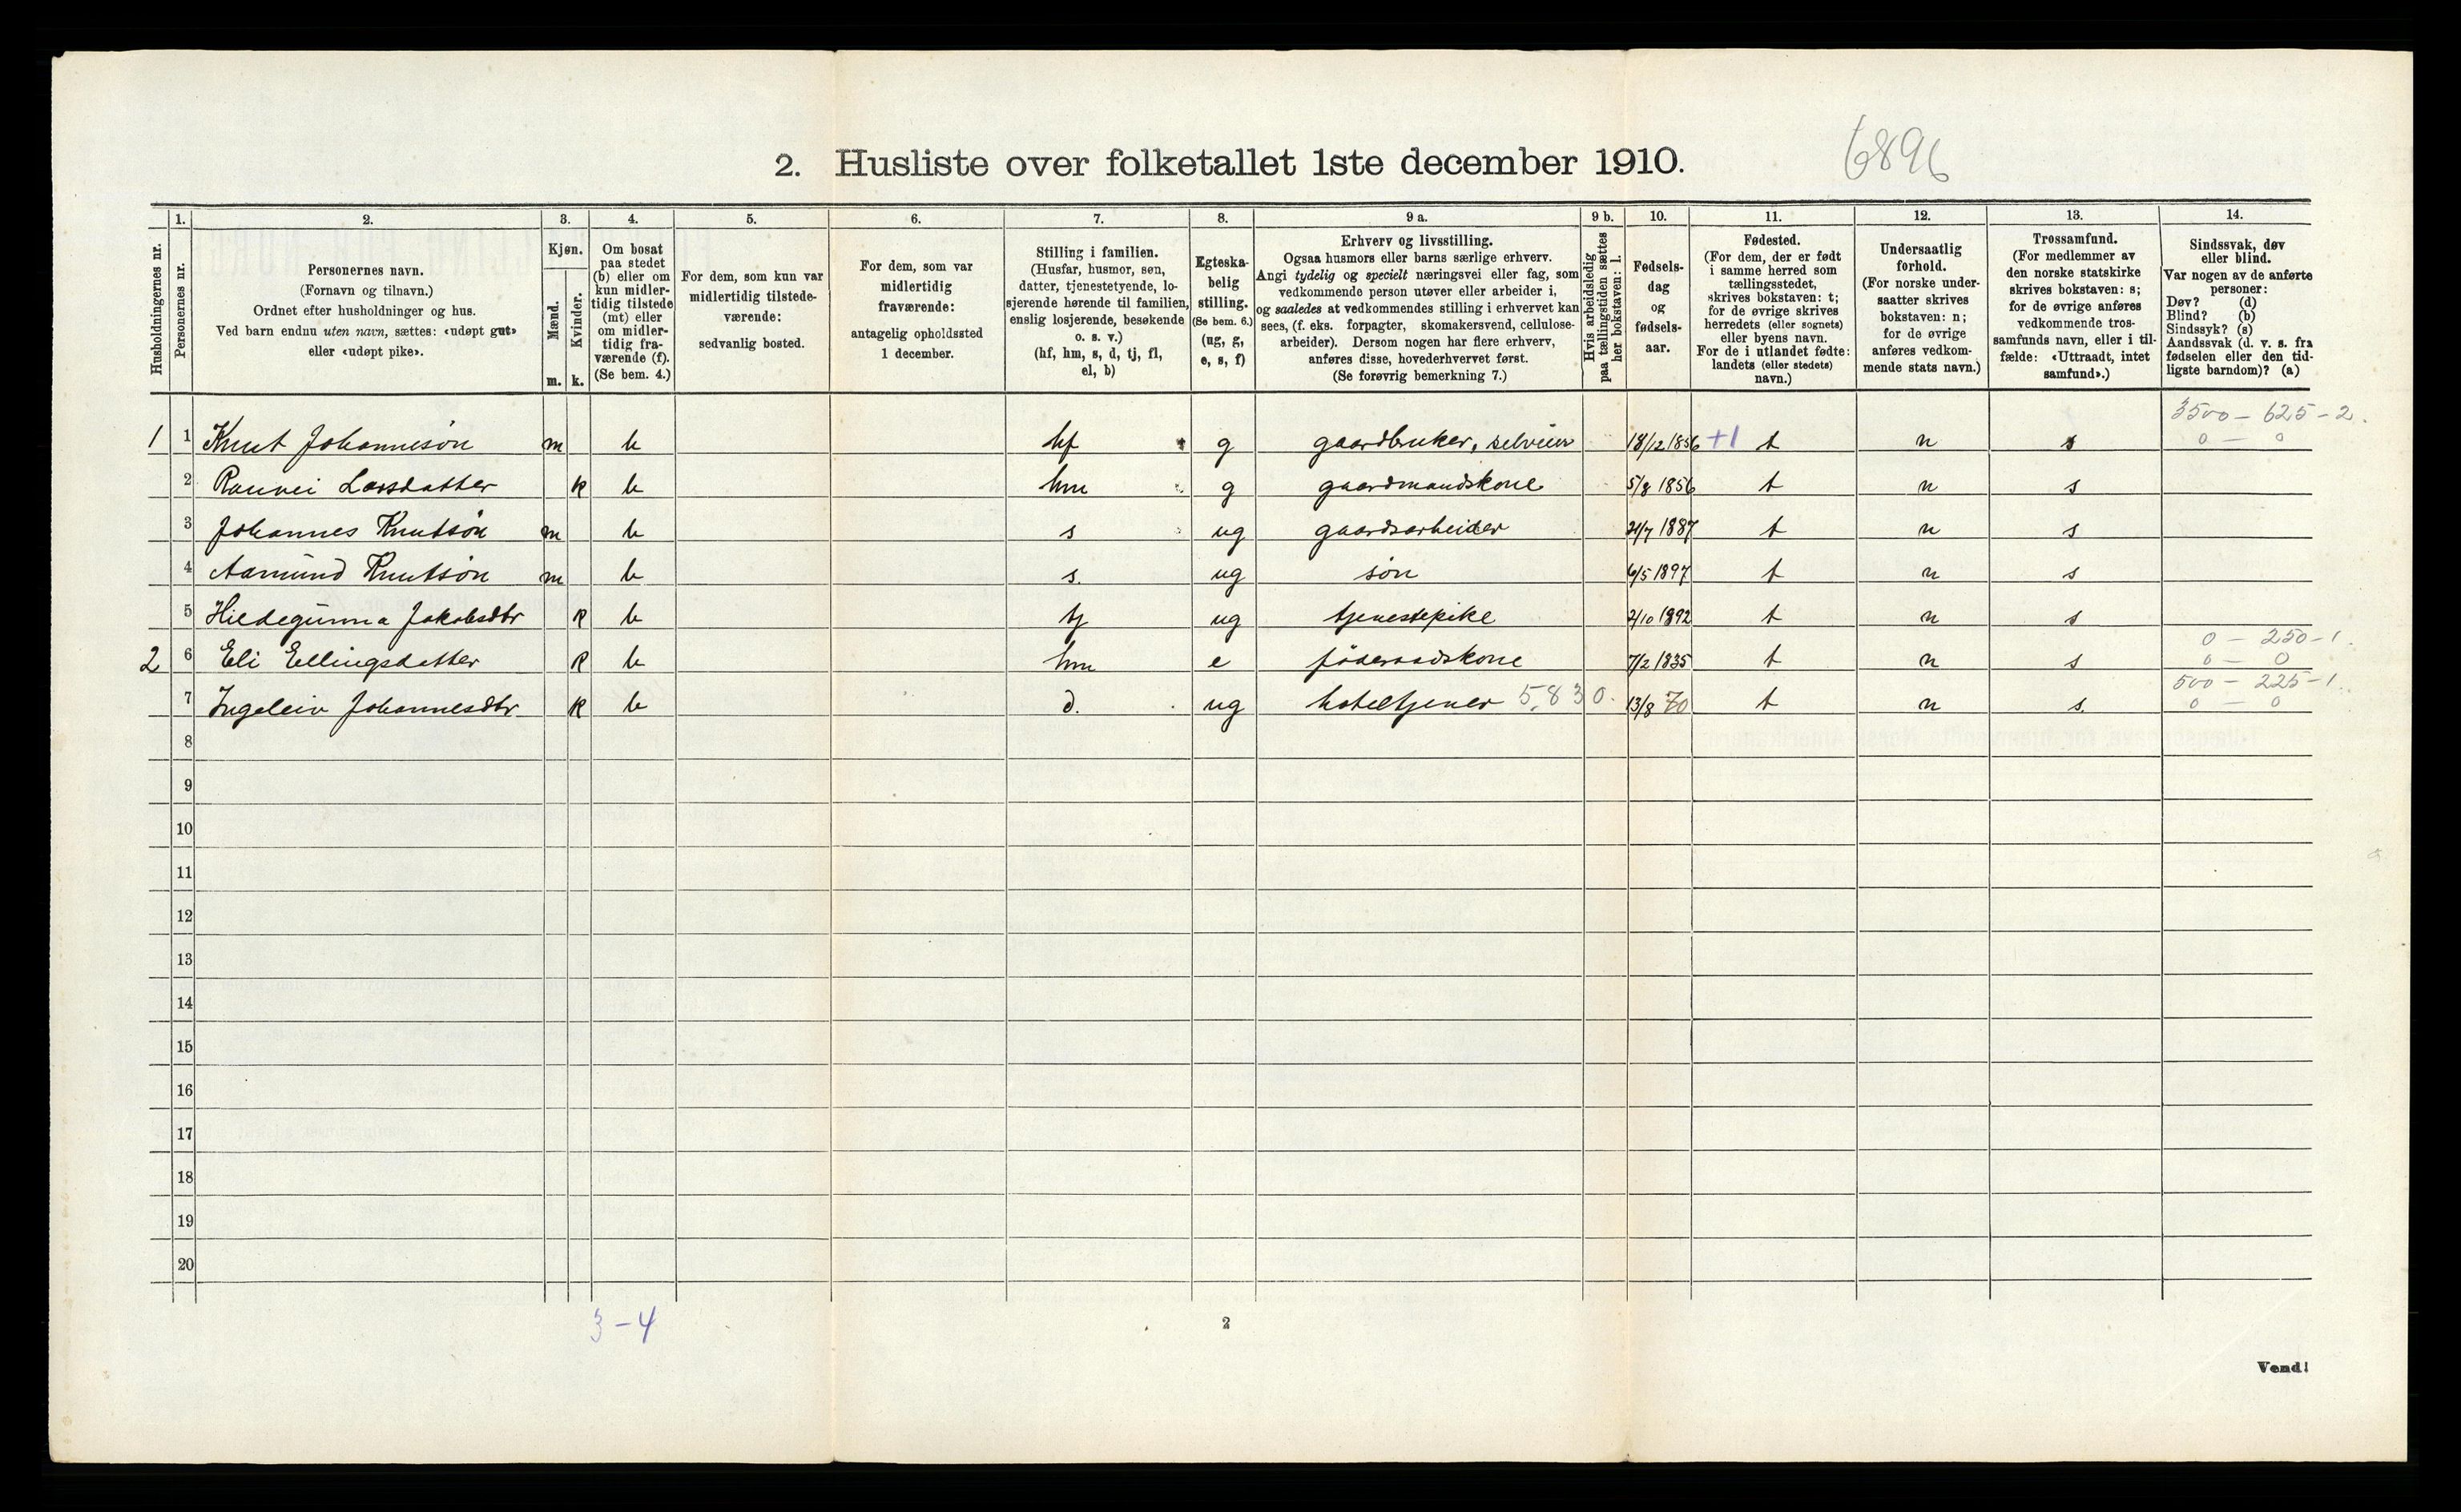 2. Husliste over folketallet 1ste december 1910.
6896
1. 2. 3. 4. 5. 6. 7. 8. 9 a. 9 b. 10. 11. 12. 13. 14.
Husholdningernes nr.
Personernes nr.
Personernes navn.
(Fornavn og tilnavn.)
Ordnet efter husholdninger og hus.
Ved barn endnu uten navn, sættes: «udøpt gut»
eller «udøpt pike».
Kjøn.
Mænd.
Kvinder.
m. k.
Om bosat
paa stedet
(b) eller om
kun midler-
tidig tilstede
(mt) eller
om midler-
tidig fra-
værende (f).
(Se bem. 4.)
For dem, som kun var
midlertidig tilstede-
værende:
sedvanlig bosted.
For dem, som var
midlertidig
fraværende:
antagelig opholdssted
1 december.
Stilling i familien.
(Husfar, husmor, søn,
datter, tjenestetyende, lo-
sjerende hørende til familien,
enslig losjerende, besøkende
o. s. v.)
(hf, hm, s, d, tj, fl,
el, b)
Egteska-
belig
stilling.
(Se bem. 6.)
(ug, g,
e, s, f)
Erhverv og livsstilling.
Ogsaa husmors eller barns særlige erhverv.
Angi tydelig og specielt næringsvei eller fag, som
vedkommende person utøver eller arbeider i,
og saaledes at vedkommendes stilling i erhvervet kan
sees, (f. eks. forpagter, skomakersvend, cellulose-
arbeider). Dersom nogen har flere erhverv,
anføres disse, hovederhvervet først.
(Se forøvrig bemerkning 7.)
Hvis arbeidsledig
paa tællingstiden sættes
her bokstaven: l.
Fødsels-
dag
og
fødsels-
aar.
Fødested.
(For dem, der er født
i samme herred som
tællingsstedet,
skrives bokstaven: t;
for de øvrige skrives
herredets (eller sognets)
eller byens navn.
For de i utlandet fødte:
landets (eller stedets)
navn.)
Undersaatlig
forhold.
(For norske under-
saatter skrives
bokstaven: n;
for de øvrige
anføres vedkom-
mende stats navn.)
Trossamfund.
(For medlemmer av
den norske statskirke
skrives bokstaven: s;
for de øvrige anføres
vedkommende tros-
samfunds navn, eller i til-
fælde: «Uttraadt, intet
samfund».)
Sindssvak, døv
eller blind.
Var nogen av de anførte
personer:
Døv? (d)
Blind? (b)
Sindssyk? (s)
Aandssvak (d. v. s. fra
fødselen eller den tid-
ligste barndom)? (a)
3500 - 625 - 2.
1 1 Knut Johannesön m b hf g gaardbruker, selveier 18/12 1856 +1 t n s 0 - 0
2 Rannei Larsdatter k b hm g gaardmandskone 5/8 1856 t n s
3 Johannes Knutsön m b s ug gaardsarbeider 21/7 1887 t n s
4 Aamund Knutsön m b s. ug sön 6/5 1897 t n s
5 Hildegunna Jakobsdtr k b tj ug tjenestepike 2/10 1892 t n s
0 - 250 - 1.
2 6 Eli Ellingsdatter k b hm e föderaadskone 7/2 1835 t n s 0 - 0
500 - 225 - 1.
7 Ingeleiv Johannesdtr k b d. ug hoteltjener 5,830. 13/8 70 t n s. 0 - 0
8
9
10
11
12
13
14
15
16
17
18
19
20
3 - 4
2
Vend!